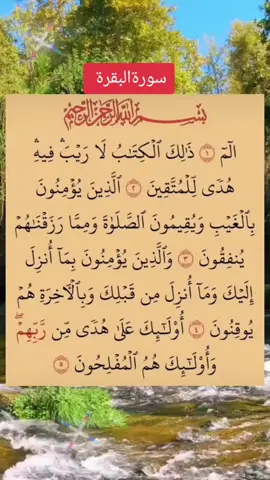 سورةالبقرة
بِسْمِ اللَّهِ الرَّحْمَٰنِ الرَّحِيمِ
الٓمٓ ١ ذَٰلِكَ ٱلْكِتَـٰبُ لَا رَيْبَ ۛ فِيهِ ۛ
هُدًى لِّلْمُتَّقِينَ ٢ ٱلَّذِينَ يُؤْمِنُونَ
بِٱلْغَيْبِ وَيُقِيمُونَ ٱلصَّلَوٰةَ وَمِمَّا رَزَقْنَـٰهُمْ
يُنفِقُونَ ٣ وَٱلَّذِينَ يُؤْمِنُونَ بِمَآ أُنزِلَ
إِلَيْكَ وَمَآ أُنزِلَ مِن قَبْلِكَ وَبِٱلْـَٔاخِرَةِ هُمْ
يُوقِنُونَ ٤ أُو۟لَـٰٓئِكَ عَلَىٰ هُدًى مِّن رَّبِّهِمْ ۖ
وَأُو۟لَـٰٓئِكَ هُمُ ٱلْمُفْلِحُونَ ٥